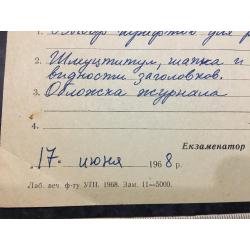 1. Выбор шрифтов для
2. Шмуцтитул, шапка и
видности заголовков.
3. Обложка журнала
4.
Экзаменатор
„17“ июня 1968 р.
Лаб. веч. ф-ту УПІ. 1968. Зам. 11—5000.